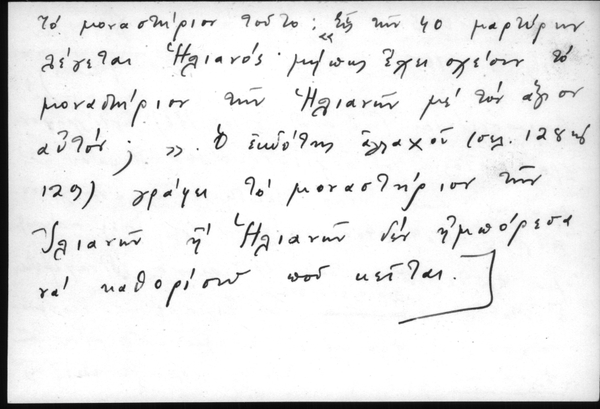 τὸ μοναστήριον τοῦτο; «Εἷς τῶν 40 μαρτύρων
λέγεται Ἠλιανός· μήπως ἔχει σχέσιν τὸ
μοναστήριον τῶν Ἠλιανῶν μὲ τὸν ἅγιον
αὐτόν; ». Ὁ ἐκδότης ἀλλαχοῦ (σελ. 128 καὶ
129) γράφει τὸ μοναστήριον τῶν
Ἰλιανῶν ἢ Ἠλιανῶν δὲν ἠμπόρεσα
νὰ καθορίσω ποῦ κεῖται.]